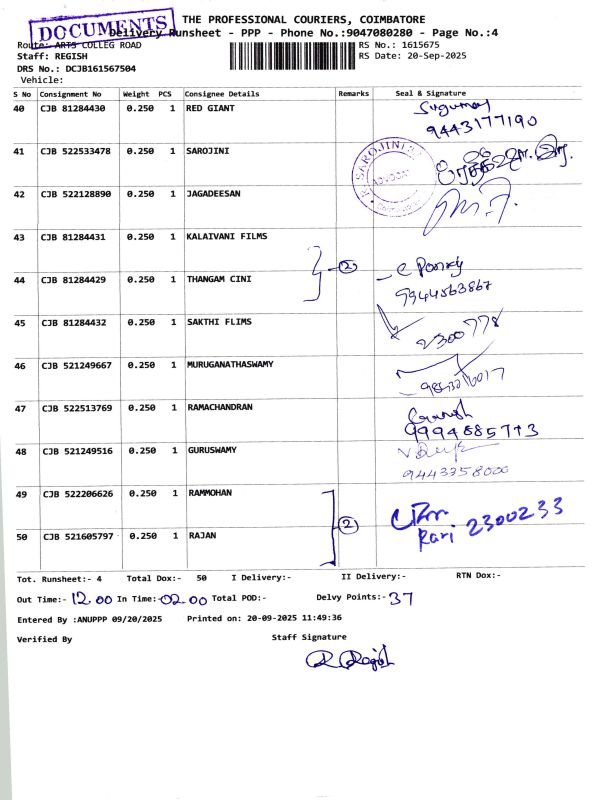 DOCUMENTS
THE PROFESSIONAL COURIERS, COIMBATORE
Delivery Runsheet - PPP - Phone No.:9047080280 - Page No.:4
Route: ARTS COLLEG ROAD
RS No.: 1615675
Staff: REGISH
RS Date: 20-Sep-2025
DRS No.: DCJB161567504
Vehicle:
S No Consignment No Weight PCS Consignee Details Remarks Seal & Signature
40 CJB 81284430 0.250 1 RED GIANT
9443177190
41 CJB 522533478 0.250 1 SAROJINI
SAROJINI
ADVOCATE
42 CJB 522128890 0.250 1 JAGADEESAN
43 CJB 81284431 0.250 1 KALAIVANI FILMS
2
44 CJB 81284429 0.250 1 THANGAM CINI
9944563867
45 CJB 81284432 0.250 1 SAKTHI FLIMS
2300778
46 CJB 521249667 0.250 1 MURUGANATHASWAMY
47 CJB 522513769 0.250 1 RAMACHANDRAN
Ganesh
9994885713
48 CJB 521249516 0.250 1 GURUSWAMY
9443358000
49 CJB 522206626 0.250 1 RAMMOHAN
2
50 CJB 521605797 0.250 1 RAJAN
Rari 2300233
Tot. Runsheet:- 4 Total Dox:- 50 I Delivery:- II Delivery:- RTN Dox:-
Out Time:- 12.00 In Time:- 02.00 Total POD:- Delvy Points:- 37
Entered By :ANUPPP 09/20/2025 Printed on: 20-09-2025 11:49:36
Verified By Staff Signature